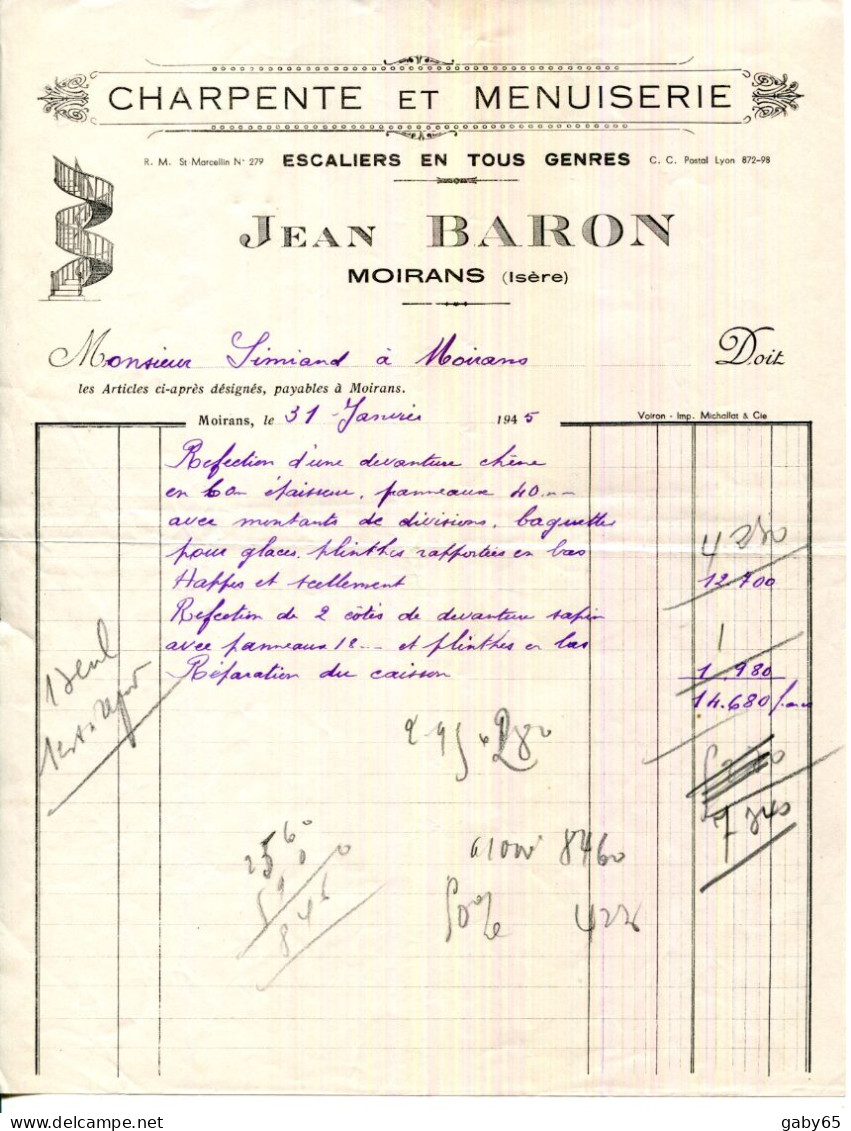 CHARPENTE ET MENUISERIE
R. M. St-Marcellin N° 279 ESCALIERS EN TOUS GENRES C. C. Postal Lyon 872-98
JEAN BARON
MOIRANS (Isère)
Monsieur Simiand à Moirans Doit
les Articles ci-après désignés, payables à Moirans.
Moirans, le 31 Janvier 1945 Voiron - Imp. Michallat & Cie
Refection d'une devanture chêne
en 60 épaisseur, panneaux 40
avec montants de divisions, baguettes
pour glaces, plinthes rapportées en bas
Happes et scellement 12.700
Refection de 2 côtés de devanture sapin
avec panneaux 12 et plinthes en bas
Réparation du caisson 1.980
14.680 francs
8460
50%
delcampe.net
gaby65